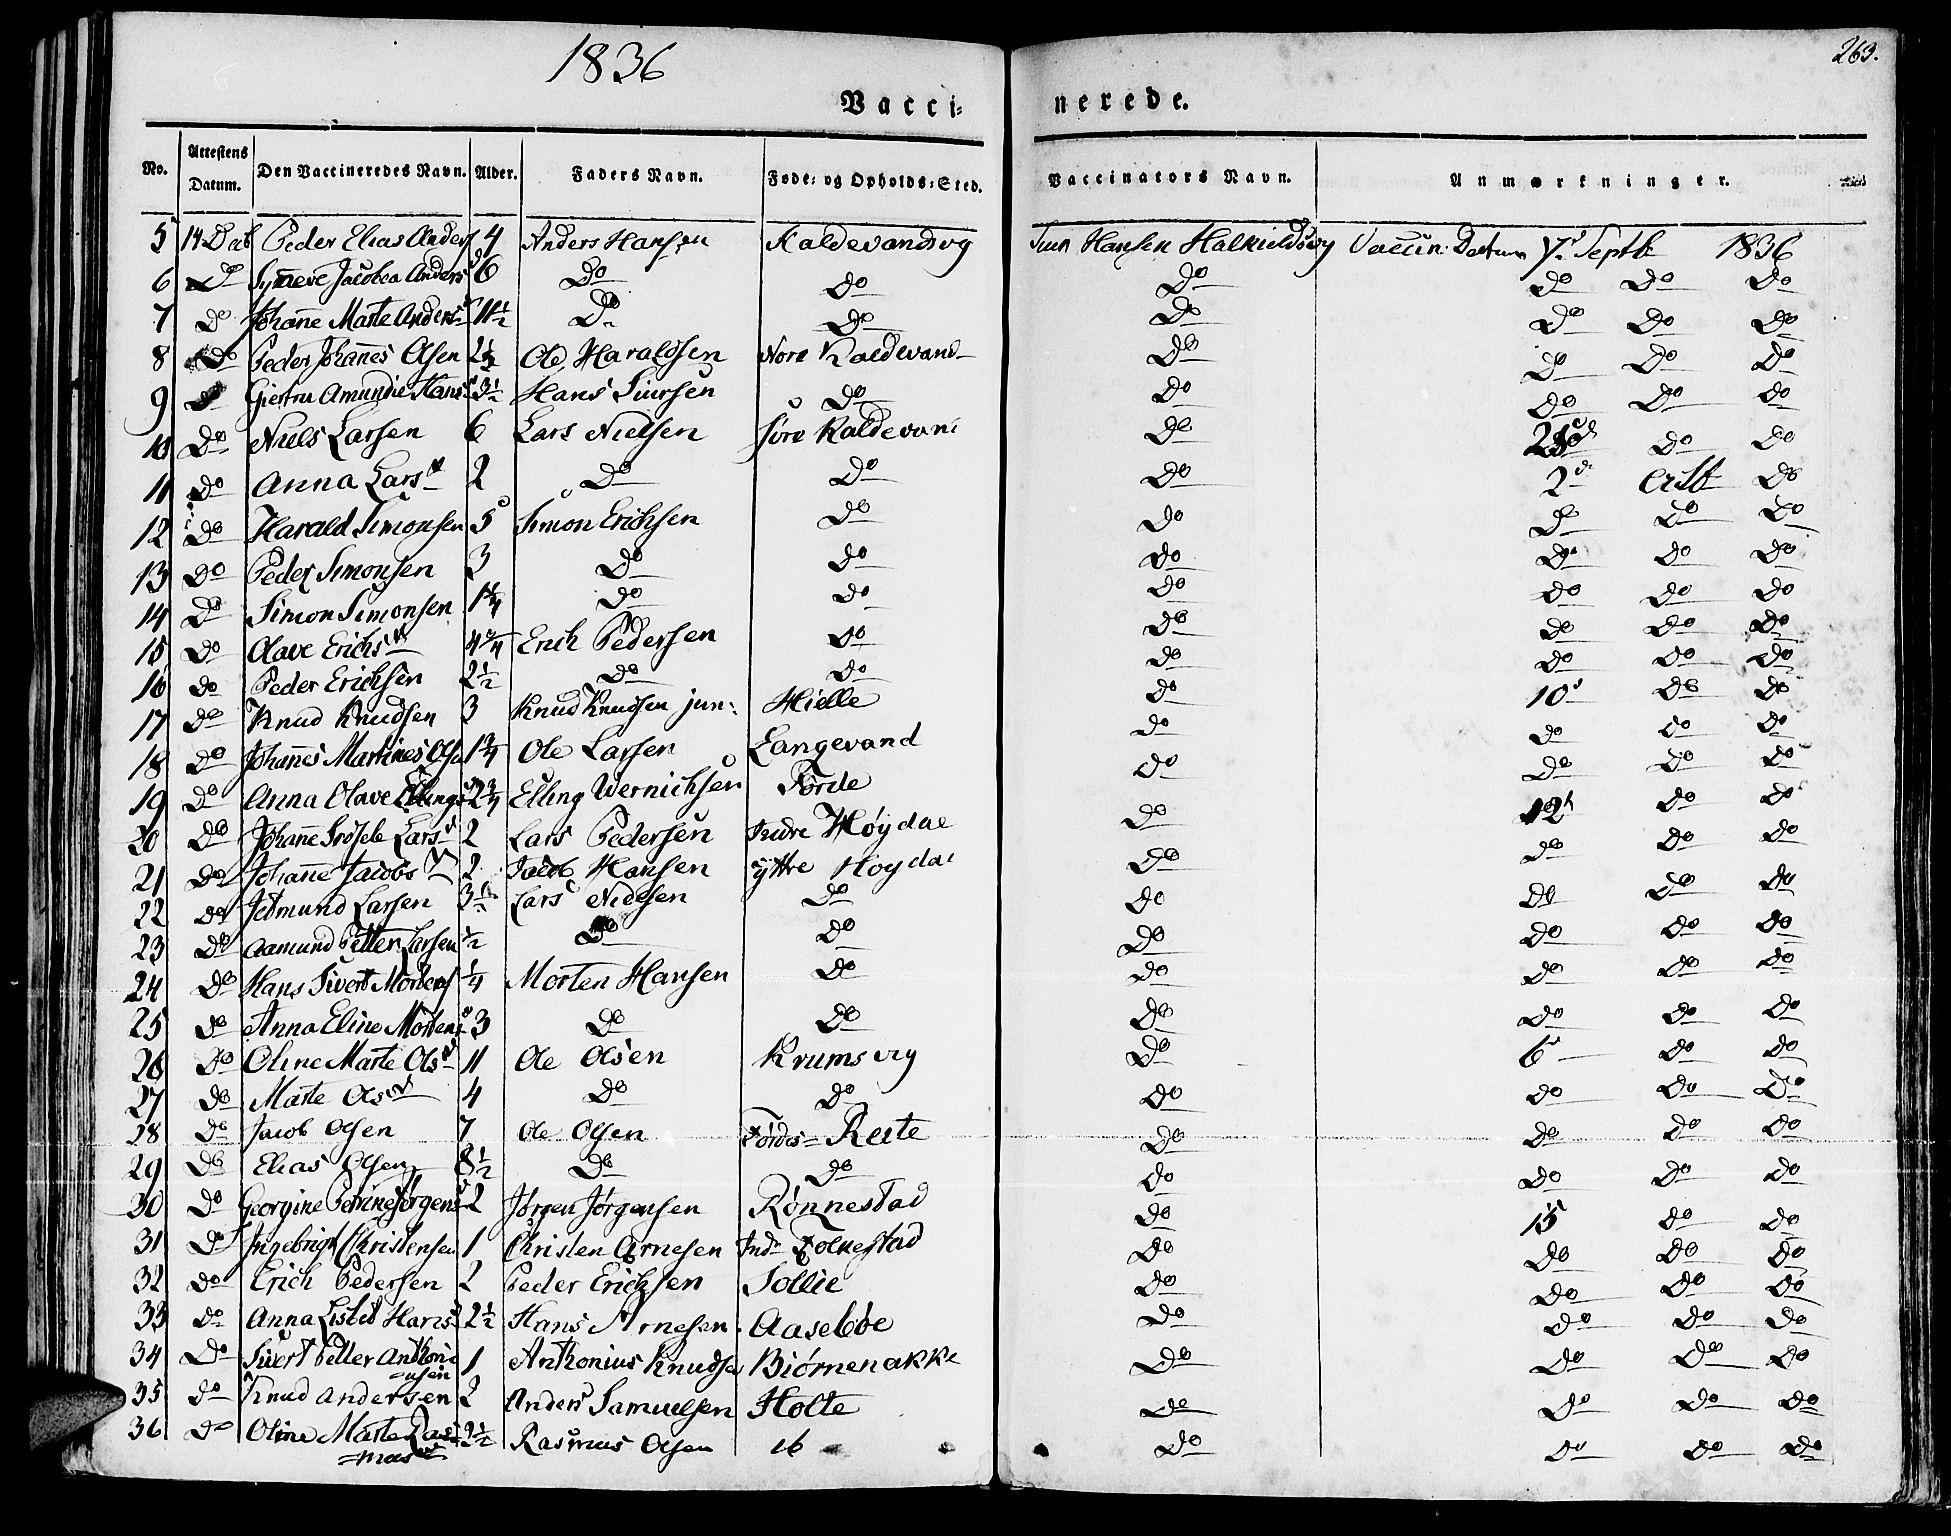 1836
263.
Vacci- nerede.
No. Attestens Datum. Den Vaccineredes Navn. Alder. Faders Navn. Føde- og Opholds-Sted. Vaccinators Navn. Anmærkninger.
5 14 Decb Peder Elias Anders 4 Anders Hansen Kaldevandsvg Hansen Vaccin. Datum 7 Septb 1836
6 Do Synneve Jacobea Andersd 6 Do Do Do Do Do Do
7 Do Johanne Marte Anders 11½ Do Do Do Do Do Do
8 Do Peder Johannes Olsen 2½ Ole Haraldsen Nore Kaldevand Do Do Do Do
9 Do Giertru Amundie Hans 3½ Hans Siursen Do Do Do Do Do
10 Do Niels Larsen 6 Lars Nielsen Søre Kaldevan Do Do Do
11 Do Anna Larsd 2 Do Do Do 2 Octb Do
12 Do Harald Simonsen 5 Simon Erichsen Do Do Do Do Do
13 Do Peder Simonsen 3 Do Do Do Do Do Do
14 Do Simon Simonsen 1¼ Do Do Do Do Do Do
15 Do Olave Erichsd 4¾ Erich Pedersen Do Do Do Do Do
16 Do Peder Erichsen 2½ Do Do Do Do Do Do
17 Do Knud Knudsen 3 Knud Knudsen jun: Hielle Do 10 Do Do
18 Do Johannes Martines Olse 1¾ Ole Larsen Langevand Do Do Do Do
19 Do Anna Olave Ellings 2¾ Elling Wernichsen Førde Do Do Do Do
20 Do Johanne Larsd 2 Lars Pedersen Indre Høydal Do 12 Do Do
21 Do Johanne Jacobsd 2 Jacob Hansen yttre Høydal Do Do Do Do
22 Do Jetmund Larsen 3½ Lars Nielsen Do Do Do Do Do
23 Do Aamund Petter Larsen ½ Do Do Do Do Do Do
24 Do Hans Sivert Mortens ¼ Morten Hansen Do Do Do Do Do
25 Do Anna Eline Mortensd 3 Do Do Do Do Do Do
26 Do Oline Marte Olsd 11 Ole Olsen Krumsvig Do 6 Do Do
27 Do Marte Olsd 4 Do Do Do Do Do Do
28 Do Jacob Olsen 7 Ole Olsen Førdes-Reite Do Do Do Do
29 Do Elias Olsen 8½ Do Do Do Do Do Do
30 Do Georgine Petrine Jørgensd 2 Jørgen Jørgensen Rønnestad Do 15 Do Do
31 Do Ingebrigt Christensen 1 Christen Arnesen Ind: Folkestad Do Do Do Do
32 Do Erich Pedersen 2 Peder Erichsen Sollie Do Do Do Do
33 Do Anna Lisbet Hansd 2½ Hans Arnesen Aasebøe Do Do Do Do
34 Do Sivert Petter Anthoni- 1 Anthonius Knudsen Biørnenakke Do Do Do Do
=usen
35 Do Knud Andersen 2 Anders Samuelsen Holte Do Do Do Do
36 Do Oline Marte Ras- 2½ Rasmus Olsen ib Do Do Do Do
=musd